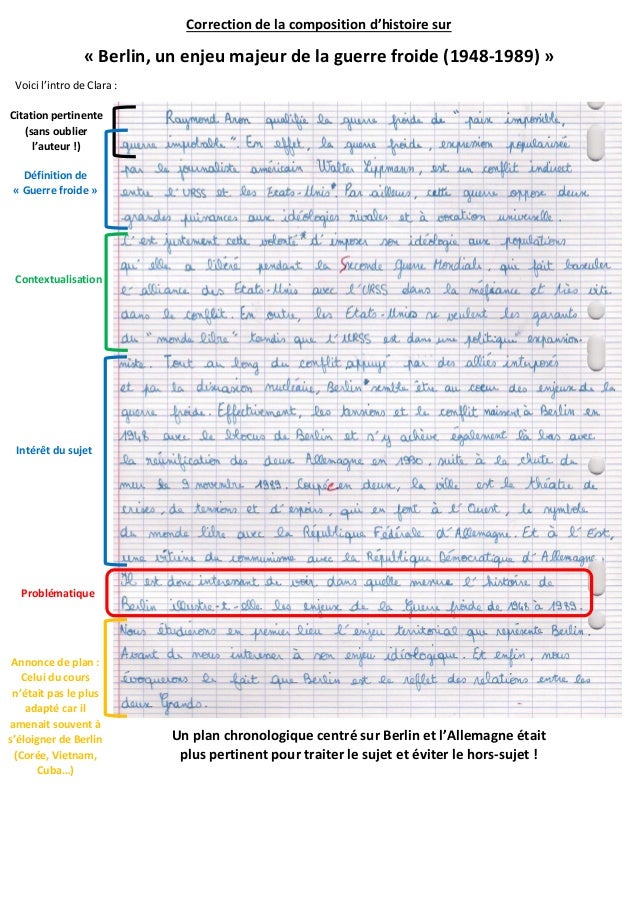 Correction de la composition d'histoire sur
« Berlin, un enjeu majeur de la guerre froide (1948-1989) »
Voici l'intro de Clara :
Citation pertinente
(sans oublier
l'auteur !)
Définition de
« Guerre froide »
Contextualisation
Intérêt du sujet
Problématique
Annonce de plan :
Celui du cours
n'était pas le plus
adapté car il
amenait souvent à
s'éloigner de Berlin
(Corée, Vietnam,
Cuba…)
Raymond Aron qualifie la guerre froide de "paix impossible,
guerre improbable". En effet, la guerre froide, expression popularisée
par le journaliste américain Walter Lippmann, est un conflit indirect
entre l'URSS et les Etats-Unis. Par ailleurs, cette guerre oppose deux
grandes puissances aux idéologies rivales et à vocation universelle.
C'est justement cette volonté d'imposer son idéologie aux populations
qu'elle a libéré pendant la Seconde Guerre Mondiale, qui fait basculer
l'alliance des Etats-Unis avec l'URSS dans la méfiance et très vite
dans le conflit. En outre, les Etats-Unis se veulent les garants
du "monde libre" tandis que l'URSS est dans une politique expansion-
niste. Tout au long du conflit, appuyé par des alliés interposés
et par la dissuasion nucléaire, Berlin semble être au coeur des enjeux de la
guerre froide. Effectivement, les tensions et le conflit naissent à Berlin en
1948 avec le blocus de Berlin et s'y achève également là bas avec
la réunification des deux Allemagne en 1990, suite à la chute du
mur le 9 novembre 1989. Coupée en deux, la ville est le théatre de
crises, de tensions et d'espoirs, qui en font à l'Ouest, le symbole
du monde libre avec la République Fédérale d'Allemagne. Et à l'Est,
une vitrine du communisme avec la République Démocratique d'Allemagne.
Il est donc interessant de voir dans quelle mesure l'histoire de
Berlin illustre-t-elle les enjeux de la Guerre froide de 1948 à 1989.
Nous étudierons en premier lieu l'enjeu territorial que représente Berlin.
Avant de nous interesser à son enjeu idéologique. Et enfin, nous
évoquerons le fait que Berlin est le reflet des relations entre les
deux Grands.
Un plan chronologique centré sur Berlin et l'Allemagne était
plus pertinent pour traiter le sujet et éviter le hors-sujet !